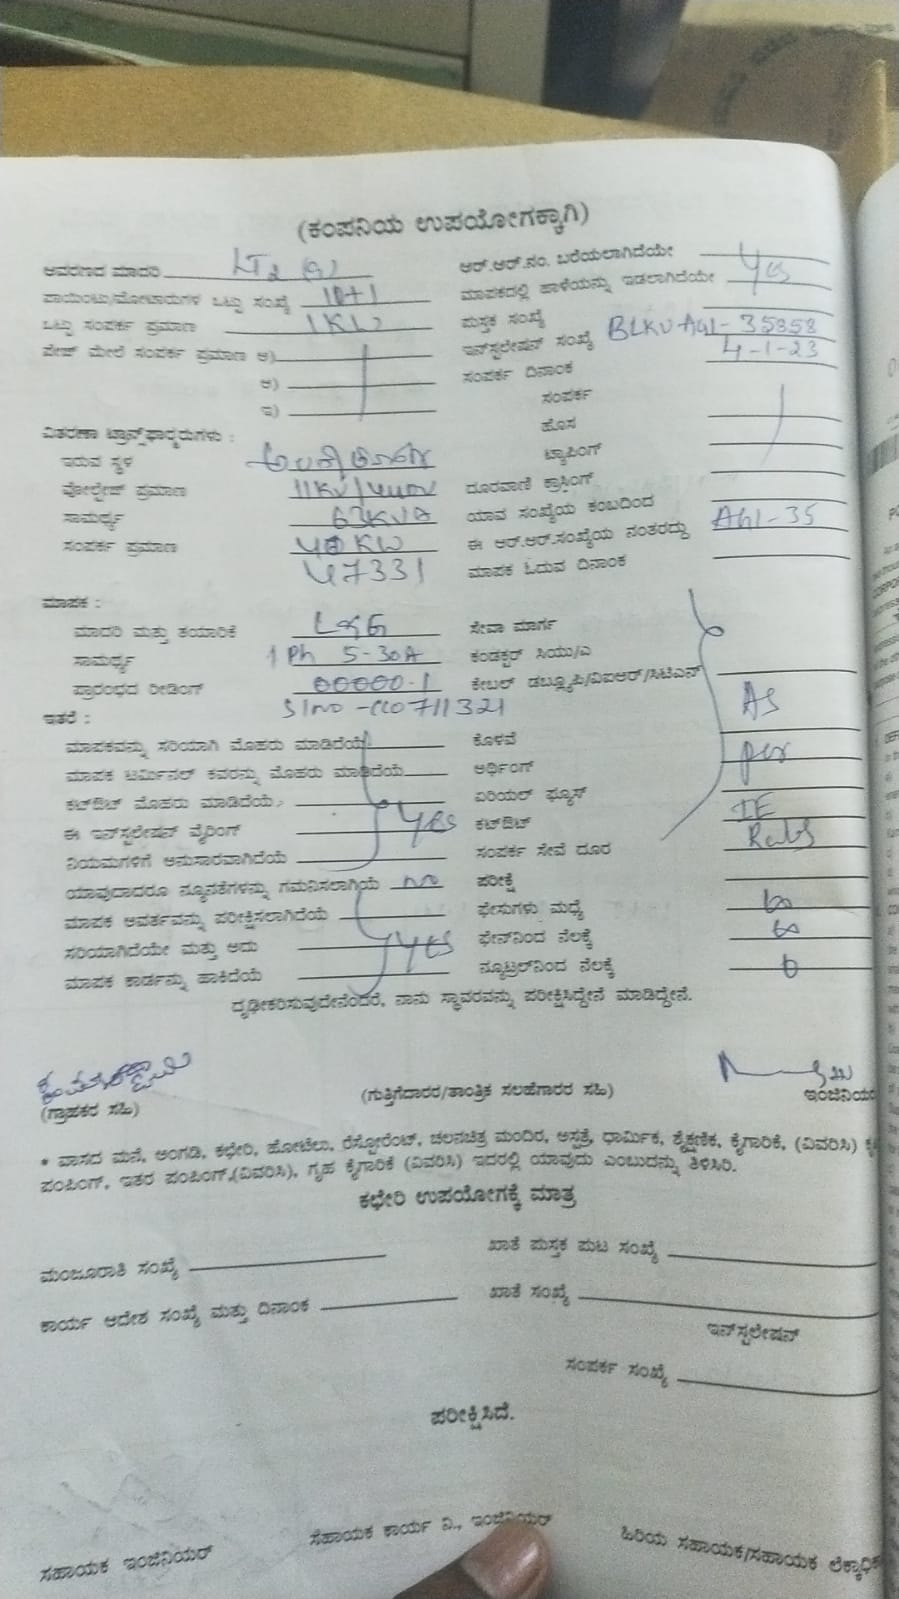 (ಕಂಪನಿಯ ಉಪಯೋಗಕ್ಕಾಗಿ)
ಆವರಣದ ಮಾದರಿ LT2 (a)
ಪಾಯಿಂಟು/ಮೋಟಾರುಗಳ ಒಟ್ಟು ಸಂಖ್ಯೆ
ಒಟ್ಟು ಸಂಪರ್ಕ ಪ್ರಮಾಣ 1KW
ಪೇಜ್ ಮೇಲೆ ಸಂಪರ್ಕ ಪ್ರಮಾಣ ಅ)
ಆ)
ಇ)
ವಿತರಣಾ ಟ್ರಾನ್ಸ್‌ಫಾರ್ಮರುಗಳು :
ಇರುವ ಸ್ಥಳ
ವೋಲ್ಟೇಜ್ ಪ್ರಮಾಣ 11KV/440V
ಸಾಮರ್ಥ್ಯ 63KVA
ಸಂಪರ್ಕ ಪ್ರಮಾಣ KW
47331
ಮಾಪಕ :
ಮಾದರಿ ಮತ್ತು ತಯಾರಿಕೆ L&G
ಸಾಮರ್ಥ್ಯ 1 Ph 5-30A
ಪ್ರಾರಂಭದ ರೀಡಿಂಗ್ 00000.1
Slno 0711321
ಇತರೆ :
ಮಾಪಕವನ್ನು ಸರಿಯಾಗಿ ಮೊಹರು ಮಾಡಿದೆಯೆ
ಮಾಪಕ ಟರ್ಮಿನಲ್ ಕವರನ್ನು ಮೊಹರು ಮಾಡಿದೆಯೆ
ಕಟ್‌ಔಟ್ ಮೊಹರು ಮಾಡಿದೆಯೆ
ಈ ಇನ್‌ಸ್ಟಲೇಷನ್ ವೈರಿಂಗ್ Yes
ನಿಯಮಗಳಿಗೆ ಅನುಸಾರವಾಗಿದೆಯೆ
ಯಾವುದಾದರೂ ನ್ಯೂನತೆಗಳನ್ನು ಗಮನಿಸಲಾಗಿಯೆ no
ಮಾಪಕ ಆವರ್ತವನ್ನು ಪರೀಕ್ಷಿಸಲಾಗಿದೆಯೆ
ಸರಿಯಾಗಿದೆಯೇ ಮತ್ತು ಅದು Yes
ಮಾಪಕ ಕಾರ್ಡನ್ನು ಹಾಕಿದೆಯೆ
ಆರ್.ಆರ್.ನಂ. ಬರೆಯಲಾಗಿದೆಯೇ
ಮಾಪಕದಲ್ಲಿ ಹಾಳೆಯನ್ನು ಇಡಲಾಗಿದೆಯೇ Yes
ಪುಸ್ತಕ ಸಂಖ್ಯೆ
ಇನ್‌ಸ್ಟಲೇಷನ್ ಸಂಖ್ಯೆ BLKV AGL-35858
ಸಂಪರ್ಕ ದಿನಾಂಕ 4-1-23
ಸಂಪರ್ಕ
ಹೊಸ
ಟ್ಯಾಪಿಂಗ್
ದೂರವಾಣಿ ಕ್ರಾಸಿಂಗ್
ಯಾವ ಸಂಖ್ಯೆಯ ಕಂಬದಿಂದ
ಈ ಆರ್.ಆರ್.ಸಂಖ್ಯೆಯ ನಂತರದ್ದು AGL-35
ಮಾಪಕ ಓದುವ ದಿನಾಂಕ
ಸೇವಾ ಮಾರ್ಗ
ಕಂಡಕ್ಟರ್ ಸಿಯು/ಎ
ಕೇಬಲ್ ಡಬ್ಲ್ಯೂಪಿ/ವಿಐಆರ್/ಸಿಟಿಎಸ್
ಕೊಳವೆ As
ಅರ್ಥಿಂಗ್ per
ಏರಿಯಲ್ ಫ್ಯೂಸ್
ಕಟ್‌ಔಟ್ IE
ಸಂಪರ್ಕ ಸೇವೆ ದೂರ Rules
ಪರೀಕ್ಷೆ
ಫೇಸುಗಳು ಮಧ್ಯೆ ∞
ಫೇಸ್‌ನಿಂದ ನೆಲಕ್ಕೆ ∞
ನ್ಯೂಟ್ರಲ್‌ನಿಂದ ನೆಲಕ್ಕೆ 0
ದೃಢೀಕರಿಸುವುದೇನೆಂದರೆ, ನಾನು ಸ್ಥಾವರವನ್ನು ಪರೀಕ್ಷಿಸಿದ್ದೇನೆ ಮಾಡಿದ್ದೇನೆ.
(ಗ್ರಾಹಕರ ಸಹಿ) (ಗುತ್ತಿಗೆದಾರರ/ತಾಂತ್ರಿಕ ಸಲಹೆಗಾರರ ಸಹಿ) ಇಂಜಿನಿಯರ
* ವಾಸದ ಮನೆ, ಅಂಗಡಿ, ಕಛೇರಿ, ಹೋಟೆಲು, ರೆಸ್ಟೋರೆಂಟ್, ಚಲನಚಿತ್ರ ಮಂದಿರ, ಆಸ್ಪತ್ರೆ, ಧಾರ್ಮಿಕ, ಶೈಕ್ಷಣಿಕ, ಕೈಗಾರಿಕೆ, (ವಿವರಿಸಿ)
ಪಂಪಿಂಗ್, ಇತರ ಪಂಪಿಂಗ್,(ವಿವರಿಸಿ), ಗೃಹ ಕೈಗಾರಿಕೆ (ವಿವರಿಸಿ) ಇದರಲ್ಲಿ ಯಾವುದು ಎಂಬುದನ್ನು ತಿಳಿಸಿರಿ.
ಕಛೇರಿ ಉಪಯೋಗಕ್ಕೆ ಮಾತ್ರ
ಮಂಜೂರಾತಿ ಸಂಖ್ಯೆ ಖಾತೆ ಪುಸ್ತಕ ಪುಟ ಸಂಖ್ಯೆ
ಕಾರ್ಯ ಆದೇಶ ಸಂಖ್ಯೆ ಮತ್ತು ದಿನಾಂಕ ಖಾತೆ ಸಂಖ್ಯೆ
ಇನ್‌ಸ್ಟಲೇಷನ್
ಸಂಪರ್ಕ ಸಂಖ್ಯೆ
ಪರೀಕ್ಷಿಸಿದೆ.
ಸಹಾಯಕ ಇಂಜಿನಿಯರ್ ಸೆಹಾಯಕ ಕಾರ್ಯ ನಿ., ಇಂಜಿನಿಯರ್ ಹಿರಿಯ ಸಹಾಯಕ/ಸಹಾಯಕ ಲೆಕ್ಕಾಧಿಕ